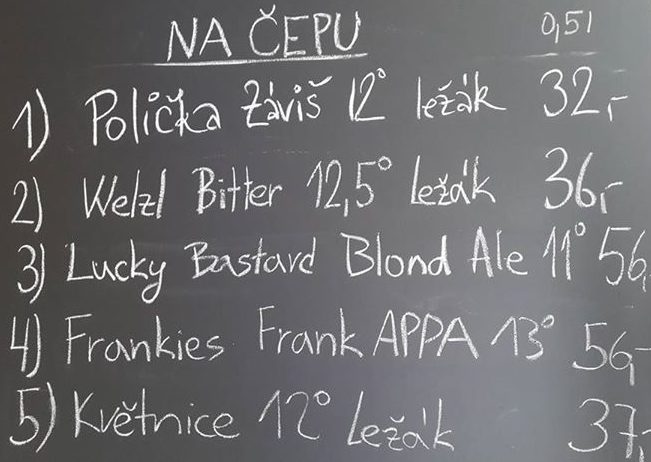 NA ČEPU 0,5l
1) Polička Záviš 12° ležák 32,-
2) Welzl Bitter 12,5° ležák 36,-
3) Lucky Bastard Blond Ale 11° 56,
4) Frankies Frank APPA 13° 56,-
5) Květnice 12° ležák 37,-